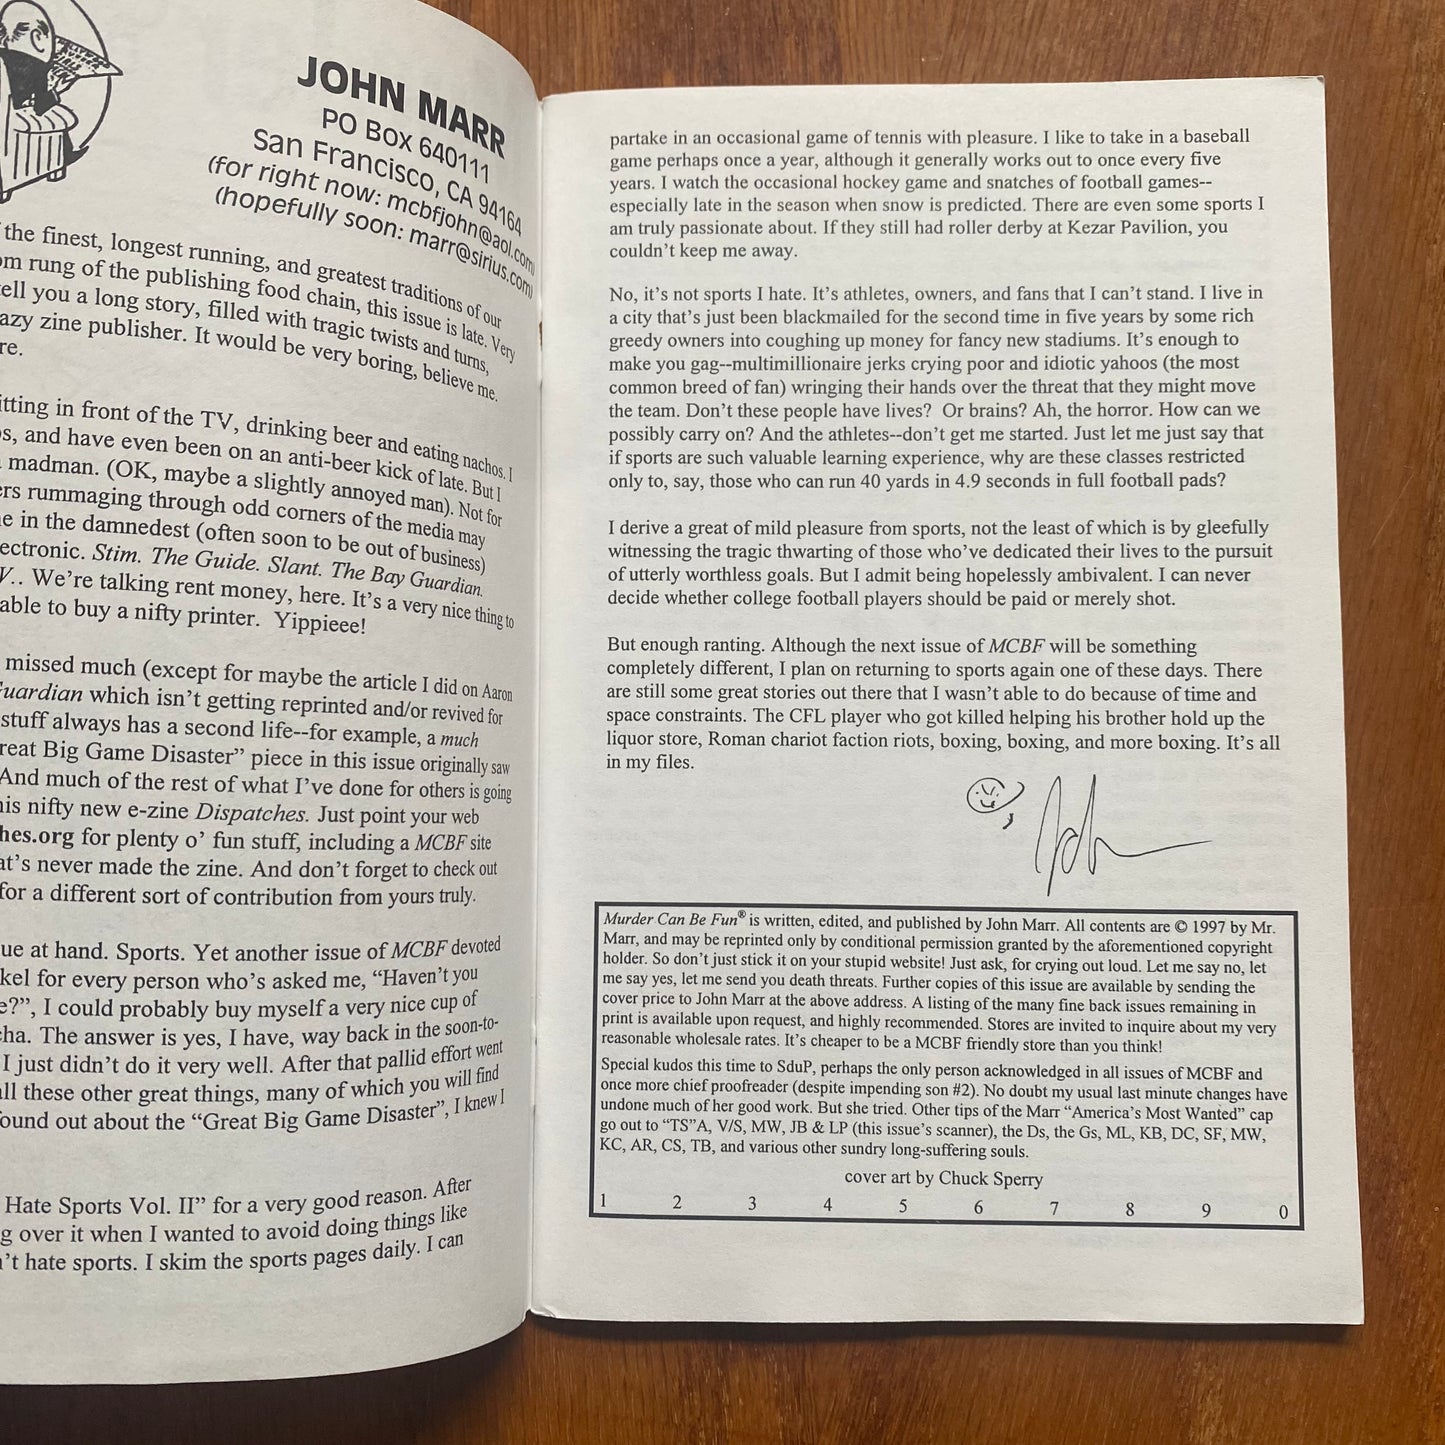 JOHN MARR
PO Box 640111
San Francisco, CA 94164
(for right now: mcbfjohn@aol.com)
(hopefully soon: marr@sirius.com)
the finest, longest running, and greatest traditions of our
rung of the publishing food chain, this issue is late. Very
you a long story, filled with tragic twists and turns,
zine publisher. It would be very boring, believe me.
in front of the TV, drinking beer and eating nachos. I
and have even been on an anti-beer kick of late. But I
madman. (OK, maybe a slightly annoyed man). Not for
rummaging through odd corners of the media may
in the damnedest (often soon to be out of business)
Stim. The Guide. Slant. The Bay Guardian.
We're talking rent money, here. It's a very nice thing to
able to buy a nifty printer.  Yippieee!
missed much (except for maybe the article I did on Aaron
Guardian which isn't getting reprinted and/or revived for
stuff always has a second life--for example, a much
reat Big Game Disaster” piece in this issue originally saw
And much of the rest of what I've done for others is going
his nifty new e-zine Dispatches. Just point your web
hes.org for plenty o' fun stuff, including a MCBF site
at's never made the zine. And don't forget to check out
for a different sort of contribution from yours truly.
ue at hand. Sports. Yet another issue of MCBF devoted
kel for every person who's asked me, “Haven't you
e?”, I could probably buy myself a very nice cup of
cha. The answer is yes, I have, way back in the soon-to-
I just didn't do it very well. After that pallid effort went
all these other great things, many of which you will find
found out about the “Great Big Game Disaster”, I knew I
Hate Sports Vol. II” for a very good reason. After
g over it when I wanted to avoid doing things like
't hate sports. I skim the sports pages daily. I can
partake in an occasional game of tennis with pleasure. I like to take in a baseball
game perhaps once a year, although it generally works out to once every five
years. I watch the occasional hockey game and snatches of football games--
especially late in the season when snow is predicted. There are even some sports I
am truly passionate about. If they still had roller derby at Kezar Pavilion, you
couldn't keep me away.
No, it's not sports I hate. It's athletes, owners, and fans that I can't stand. I live in
a city that's just been blackmailed for the second time in five years by some rich
greedy owners into coughing up money for fancy new stadiums. It's enough to
make you gag--multimillionaire jerks crying poor and idiotic yahoos (the most
common breed of fan) wringing their hands over the threat that they might move
the team. Don't these people have lives?  Or brains? Ah, the horror. How can we
possibly carry on? And the athletes--don't get me started. Just let me just say that
if sports are such valuable learning experience, why are these classes restricted
only to, say, those who can run 40 yards in 4.9 seconds in full football pads?
I derive a great of mild pleasure from sports, not the least of which is by gleefully
witnessing the tragic thwarting of those who've dedicated their lives to the pursuit
of utterly worthless goals. But I admit being hopelessly ambivalent. I can never
decide whether college football players should be paid or merely shot.
But enough ranting. Although the next issue of MCBF will be something
completely different, I plan on returning to sports again one of these days. There
are still some great stories out there that I wasn't able to do because of time and
space constraints. The CFL player who got killed helping his brother hold up the
liquor store, Roman chariot faction riots, boxing, boxing, and more boxing. It's all
in my files.
John
Murder Can Be Fun® is written, edited, and published by John Marr. All contents are © 1997 by Mr.
Marr, and may be reprinted only by conditional permission granted by the aforementioned copyright
holder. So don't just stick it on your stupid website! Just ask, for crying out loud. Let me say no, let
me say yes, let me send you death threats. Further copies of this issue are available by sending the
cover price to John Marr at the above address. A listing of the many fine back issues remaining in
print is available upon request, and highly recommended. Stores are invited to inquire about my very
reasonable wholesale rates. It's cheaper to be a MCBF friendly store than you think!
Special kudos this time to SduP, perhaps the only person acknowledged in all issues of MCBF and
once more chief proofreader (despite impending son #2). No doubt my usual last minute changes have
undone much of her good work. But she tried. Other tips of the Marr “America's Most Wanted” cap
go out to “TS”A, V/S, MW, JB & LP (this issue's scanner), the Ds, the Gs, ML, KB, DC, SF, MW,
KC, AR, CS, TB, and various other sundry long-suffering souls.
cover art by Chuck Sperry
1 2 3 4 5 6 7 8 9 0